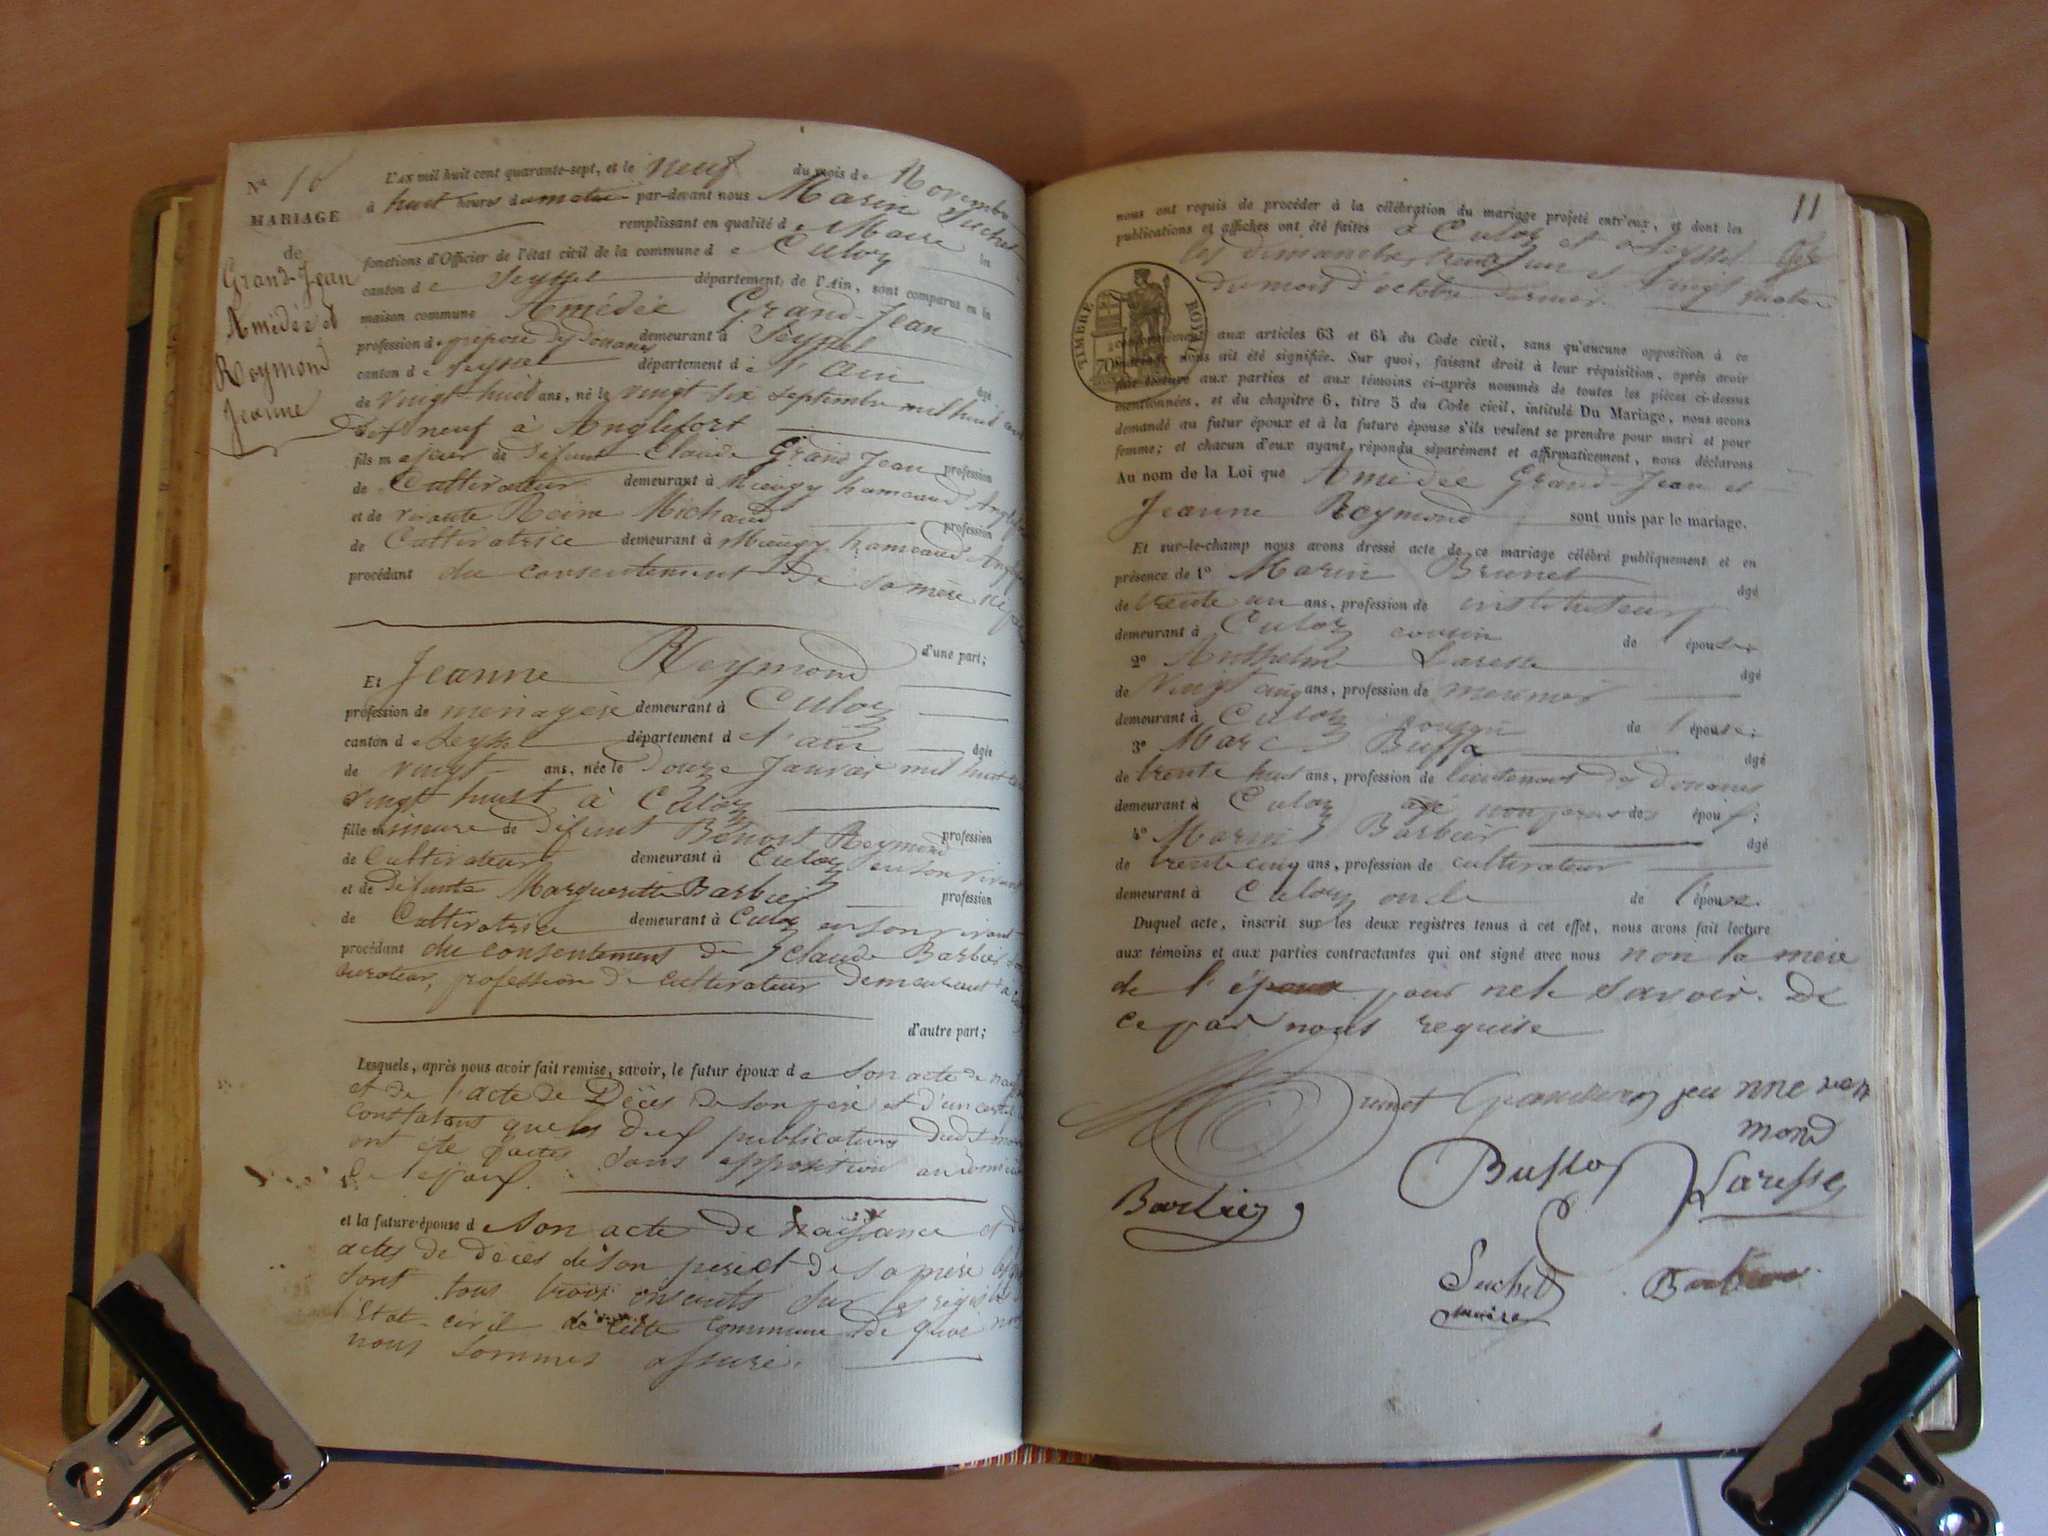 N° 10
MARIAGE
de
Grand-Jean
Amédée et
Reymond
Jeanne
L'AN mil huit cent quarante-sept, et le neuf du mois de Novembre
à huit heures du matin par-devant nous Marin Suchet
remplissant en qualité de Maire les
fonctions d'Officier de l'état civil de la commune de Culoz
canton de Seyssel département de l'Ain, sont comparus en la
maison commune Amédée Grand-Jean
profession de préposé des Douanes demeurant à Seyssel
canton de Seyssel département de l'Ain âgé
de vingt-huit ans, né le vingt six septembre mil huit cent
dix neuf à Anglefort
fils majeur de défunt Claude Grand Jean profession
de Cultivateur demeurant à hameau
et de vivante Reine Michaud profession
de Cultivatrice demeurant à hameau
procédant du consentement de sa mère
d'une part;
Et Jeanne Reymond
profession de ménagère demeurant à Culoz
canton de Seyssel département de l'ain âgée
de vingt ans, née le douze Janvier mil huit cent
vingt huit à Culoz
fille mineure de défunt Benoit Reymond profession
de Cultivateur demeurant à Culoz en son vivant
et de défunte Marguerite Barbier profession
de Cultivatrice demeurant à Culoz en son vivant
procédant du consentement de Claude Barbier son
curateur, profession de cultivateur demeurant à
d'autre part;
Lesquels, après nous avoir fait remise, savoir, le futur époux de son acte de
et de l'acte de Décès de son père et d'un
constatant que les deux publications dudit
ont été faites sans opposition au
de
et la future épouse de son acte de naissance et
actes de décès de son père et de sa mère
sont tous trois inscrits sur les registres
l'état-civil de cette commune de quoi
nous sommes assuré.
11
nous ont requis de procéder à la célébration du mariage projeté entr'eux, et dont les
publications et affiches ont été faites à Culoz et à Seyssel
les dimanches trente un et vingt quatre
du mois d'octobre dernier.
TIMBRE ROYAL
conformément aux articles 63 et 64 du Code civil, sans qu'aucune opposition à ce
mariage nous ait été signifiée. Sur quoi, faisant droit à leur réquisition, après avoir
fait lecture aux parties et aux témoins ci-après nommés de toutes les pièces ci-dessus
mentionnées, et du chapitre 6, titre 5 du Code civil, intitulé Du Mariage, nous avons
demandé au futur époux et à la future épouse s'ils veulent se prendre pour mari et pour
femme; et chacun d'eux ayant répondu séparément et affirmativement, nous déclarons
Au nom de la Loi que Amédée Grand-Jean et
Jeanne Reymond sont unis par le mariage.
Et sur-le-champ nous avons dressé acte de ce mariage célébré publiquement et en
présence de 1° Marin Brunet âgé
de trente un ans, profession de instituteur
demeurant à Culoz cousin de épouse
2° Anthelme Laresse âgé
de vingt cinq ans, profession de menuisier
demeurant à Culoz cousin de l'épouse;
3° Marc Buffa âgé
de trente huit ans, profession de lieutenant des douanes
demeurant à Culoz non parent des époux;
4° Marin Barbier âgé
de trente cinq ans, profession de cultivateur
demeurant à Culoz oncle de l'épouse.
Duquel acte, inscrit sur les deux registres tenus à cet effet, nous avons fait lecture
aux témoins et aux parties contractantes qui ont signé avec nous non la mère
de l'époux pour ne le savoir. De
ce par nous requise
Brunet Grandjean jeanne rey
mond
Barbier Buffa Laresse
Suchet Barbier
maire